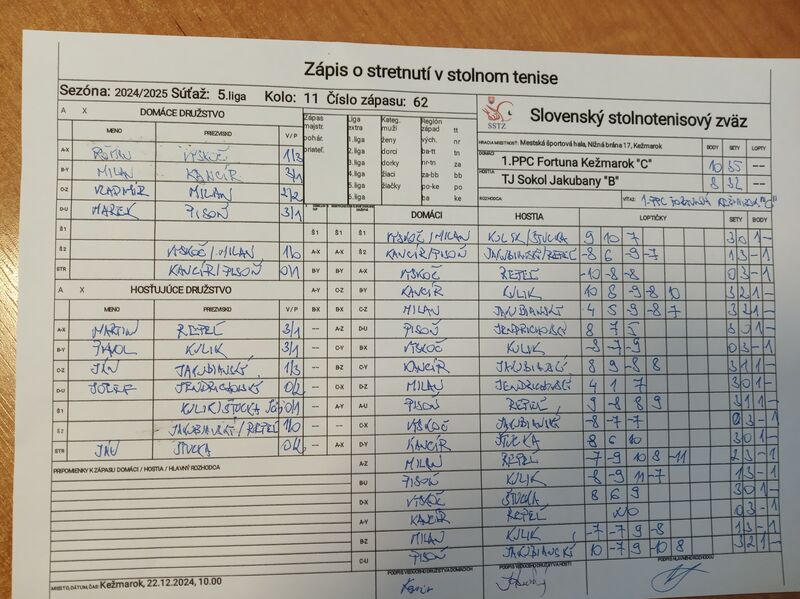 Zápis o stretnutí v stolnom tenise
Sezóna: 2024/2025 Súťaž: 5.liga Kolo: 11 Číslo zápasu: 62
Slovenský stolnotenisový zväz
SSTZ
HRACIA MIESTNOSŤ: Mestská športová hala, Nižná brána 17, Kežmarok
DOMÁCI BODY SETY LOPTY
1.PPC Fortuna Kežmarok "C" 10 35 ---
HOSTIA
TJ Sokol Jakubany "B" 8 32 ---
ROZHODCA: VÍŤAZ: 1.PPC FORTUNA KEŽMAROK "C"
A X DOMÁCE DRUŽSTVO
MENO PRIEZVISKO V/P
A-X VYSKOČ 1/3
B-Y MILAN KANCÍR 3/1
C-Z VLADIMÍR MILAN 2/2
D-U MAREK PISOŇ 3/1
Š1
Š2 VYSKOČ/MILAN 1/0
STR KANCÍR/PISOŇ 0/1
A X HOSŤUJÚCE DRUŽSTVO
MENO PRIEZVISKO V/P
A-X MARTIN REPEĽ 3/1
B-Y PAVOL KULIK 3/1
C-Z JÁN JAKUBIANSKÝ 1/3
D-U JOZEF JENDRICHOVSKÝ 0/2
Š1 KULIK/ŠTUCKA 0/1
Š2 JAKUBIANSKÝ/REPEĽ 1/0
STR JÁN ŠTUCKA 0/2
PRIPOMIENKY K ZÁPASU DOMÁCI / HOSTIA / HLAVNÝ ROZHODCA
Zápas Liga Kateg. Región
majstr. extra muži západ tt
pohár. 1.liga ženy vých. nr
priateľ. 2.liga dorci ba-tt tn
3.liga dorky nr-tn za
4.liga žiaci za-bb bb
5.liga žiačky po-ke po
6.liga ba ke
DOMÁCI HOSTIA LOPTIČKY SETY BODY
Š1 Š1 VYSKOČ/MILAN KULIK/ŠTUCKA 9 10 7 3 0 1 -
A-X Š2 KANCÍR/PISOŇ JAKUBIANSKÝ/REPEĽ -8 6 -9 -7 1 3 - 1
B-Y A-X VYSKOČ REPEĽ -10 -8 -8 0 3 - 1
A-Y C-Z B-Y KANCÍR KULIK 10 8 -9 -8 10 3 2 1 -
B-X B-X C-Z MILAN JAKUBIANSKÝ 4 5 -9 -8 7 3 2 1 -
--- A-Z D-U PISOŇ JENDRICHOVSKÝ 8 7 5 3 0 1 -
--- C-Y B-X VYSKOČ KULIK -8 -7 -9 0 3 - 1
--- B-Z C-Y KANCÍR JAKUBIANSKÝ 8 9 -8 8 3 1 1 -
--- C-X D-Z MILAN JENDRICHOVSKÝ 4 1 7 3 0 1 -
--- A-Y A-U PISOŇ REPEĽ 9 -8 8 9 3 1 1 -
--- --- C-X VYSKOČ JAKUBIANSKÝ -8 -7 -7 0 3 - 1
--- A-X D-Y KANCÍR ŠTUCKA 8 6 10 3 0 1 -
A-Z MILAN REPEĽ -7 -9 10 8 -11 2 3 - 1
B-U PISOŇ KULIK -8 -9 11 -7 1 3 - 1
D-X VYSKOČ ŠTUCKA 8 6 9 3 0 1 -
A-Y KANCÍR REPEĽ 0 3 - 1
B-Z MILAN KULIK -7 -7 9 -8 1 3 - 1
C-U PISOŇ JAKUBIANSKÝ 10 -7 9 -10 8 3 2 1 -
PODPIS VEDÚCEHO DRUŽSTVA DOMÁCICH PODPIS VEDÚCEHO DRUŽSTVA HOSTÍ PODPIS HLAVNÉHO ROZHODCU
MIESTO, DÁTUM, ČAS: Kežmarok, 22.12.2024, 10.00